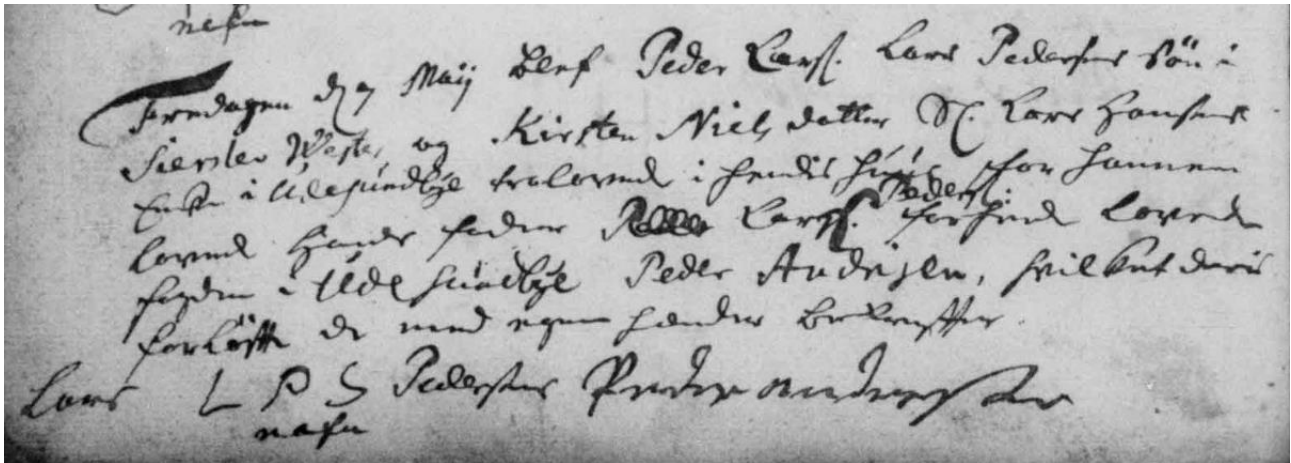 nafn
Fredagen d 7 Maij blef Peder Larss. Lars Pedersens Sön i
Sierslev Wester og Kirsten Niels datter Sl. Lars Hansens
Enke i Udesundbye trolovede i hendis huus, for hannem
lovede hands fader Larss. Peders. for hende lovede
fogden i Udesundbye Peder Andersen, hvilket deris
forløfte de med egne hænder bekreffter.
Lars L P S Pedersens Peder Andersen
nafn